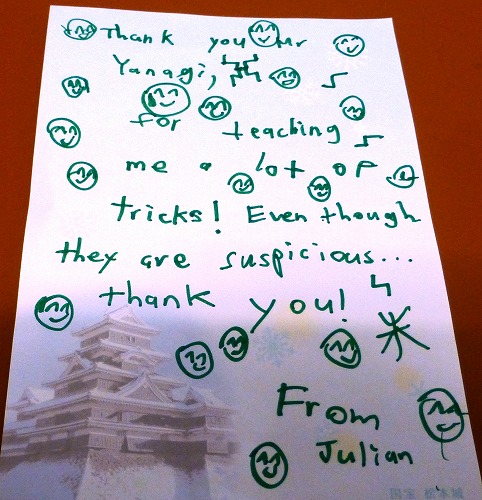 Thank you Mr
Yanagi,
for teaching
me a lot of
tricks! Even though
they are suspicious...
thank you!
米
From
Julian